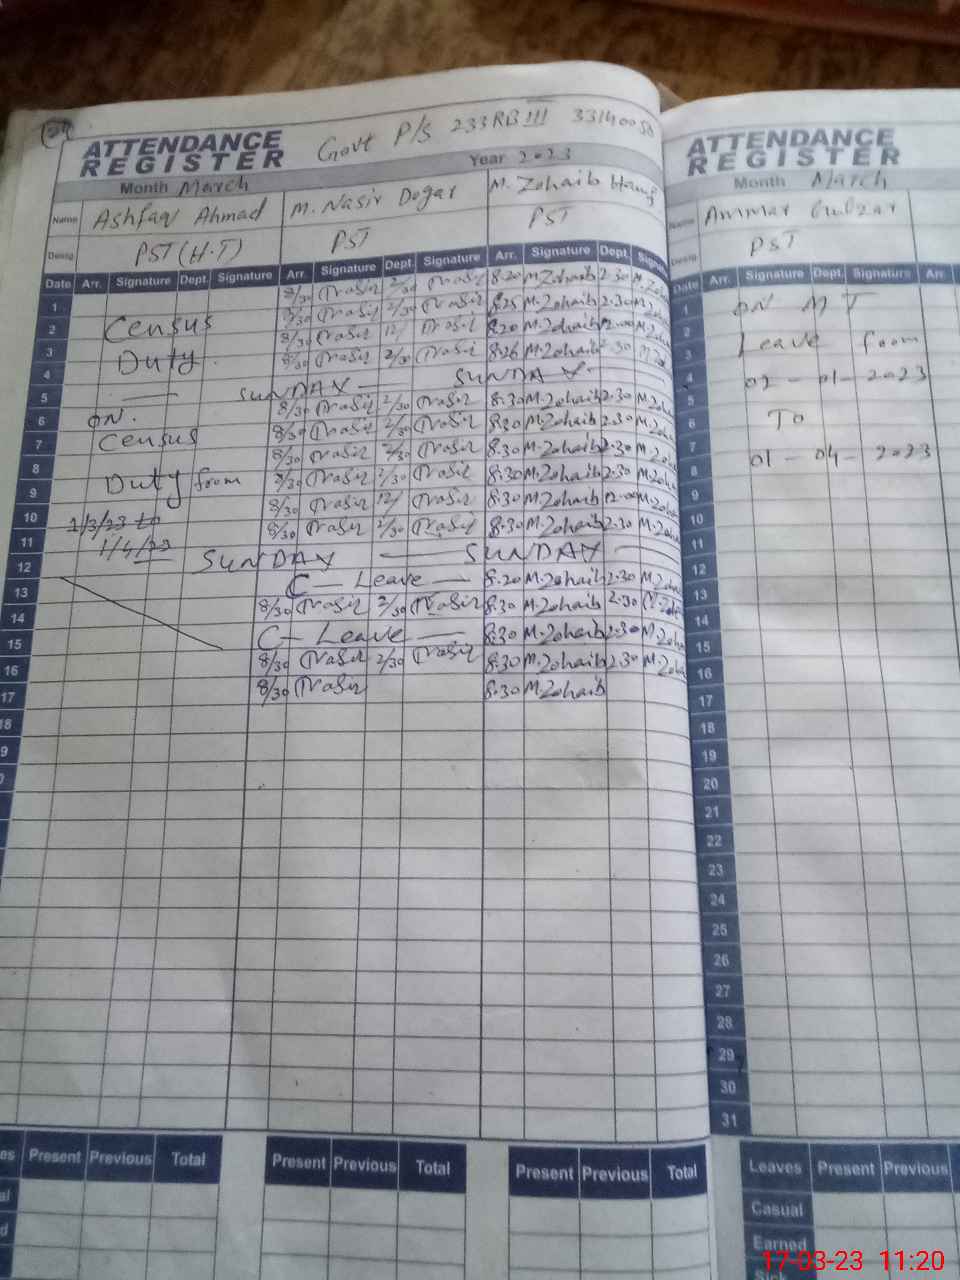 29
Govt P/S 233RB III 33140058
ATTENDANCE
REGISTER
Year 2023
Month March
Name Ashfaq Ahmad M. Nasir Dogar M. Zohaib
Desig PST (H.T) PST PST
Date Arr. Signature Dept. Signature Arr. Signature Dept. Signature Arr. Signature Dept. Signature
1 8/30 Nasir 2/30 Nasir 8.20 M.Zohaib 2.30 M.Zohaib
2 Census 8/30 Nasir 2/30 Nasir 8.25 M.Zohaib 2.30
3 Duty 8/30 Nasir 12/ Nasir 8.20 M.Zohaib 12.00
4 8/30 Nasir 2/30 Nasir 8.26 M.Zohaib 2.30
5 — SUNDAY — SUNDAY —
6 ON. 8/30 Nasir 2/30 Nasir 8.30 M.Zohaib 2.30
7 Census 8/30 Nasir 2/30 Nasir 8.30 M.Zohaib 2.30
8 8/30 Nasir 2/30 Nasir 8.30 M.Zohaib 2.30
9 Duty from 8/30 Nasir 2/30 Nasir 8.30 M.Zohaib 2.30
10 1/3/23 to 8/30 Nasir 12/ Nasir 8.30 M.Zohaib 12.00
11 1/4/23 8/30 Nasir 2/30 Nasir 8.30 M.Zohaib 2.30
12 SUNDAY — SUNDAY —
13 C — Leave — 8.20 M.Zohaib 2.30
14 8/30 Nasir 2/30 Nasir 8.30 M.Zohaib 2.30
15 C — Leave — 8.30 M.Zohaib 2.30
16 8/30 Nasir 2/30 Nasir 8.30 M.Zohaib 2.30
17 8/30 Nasir 8.30 M.Zohaib
18
9
0
es Present Previous Total Present Previous Total Present Previous Total
al
d
ATTENDANCE
REGISTER
Month March
Name Ammar Gulzar
Desig PST
Date Arr. Signature Dept. Signature Arr.
1 ON M T
2
3 Leave from
4 02 - 01 - 2023
5
6 To
7 01 - 04 - 2023
8
9
10
11
12
13
14
15
16
17
18
19
20
21
22
23
24
25
26
27
28
29
30
31
Leaves Present Previous
Casual
Earned
17-03-23 11:20